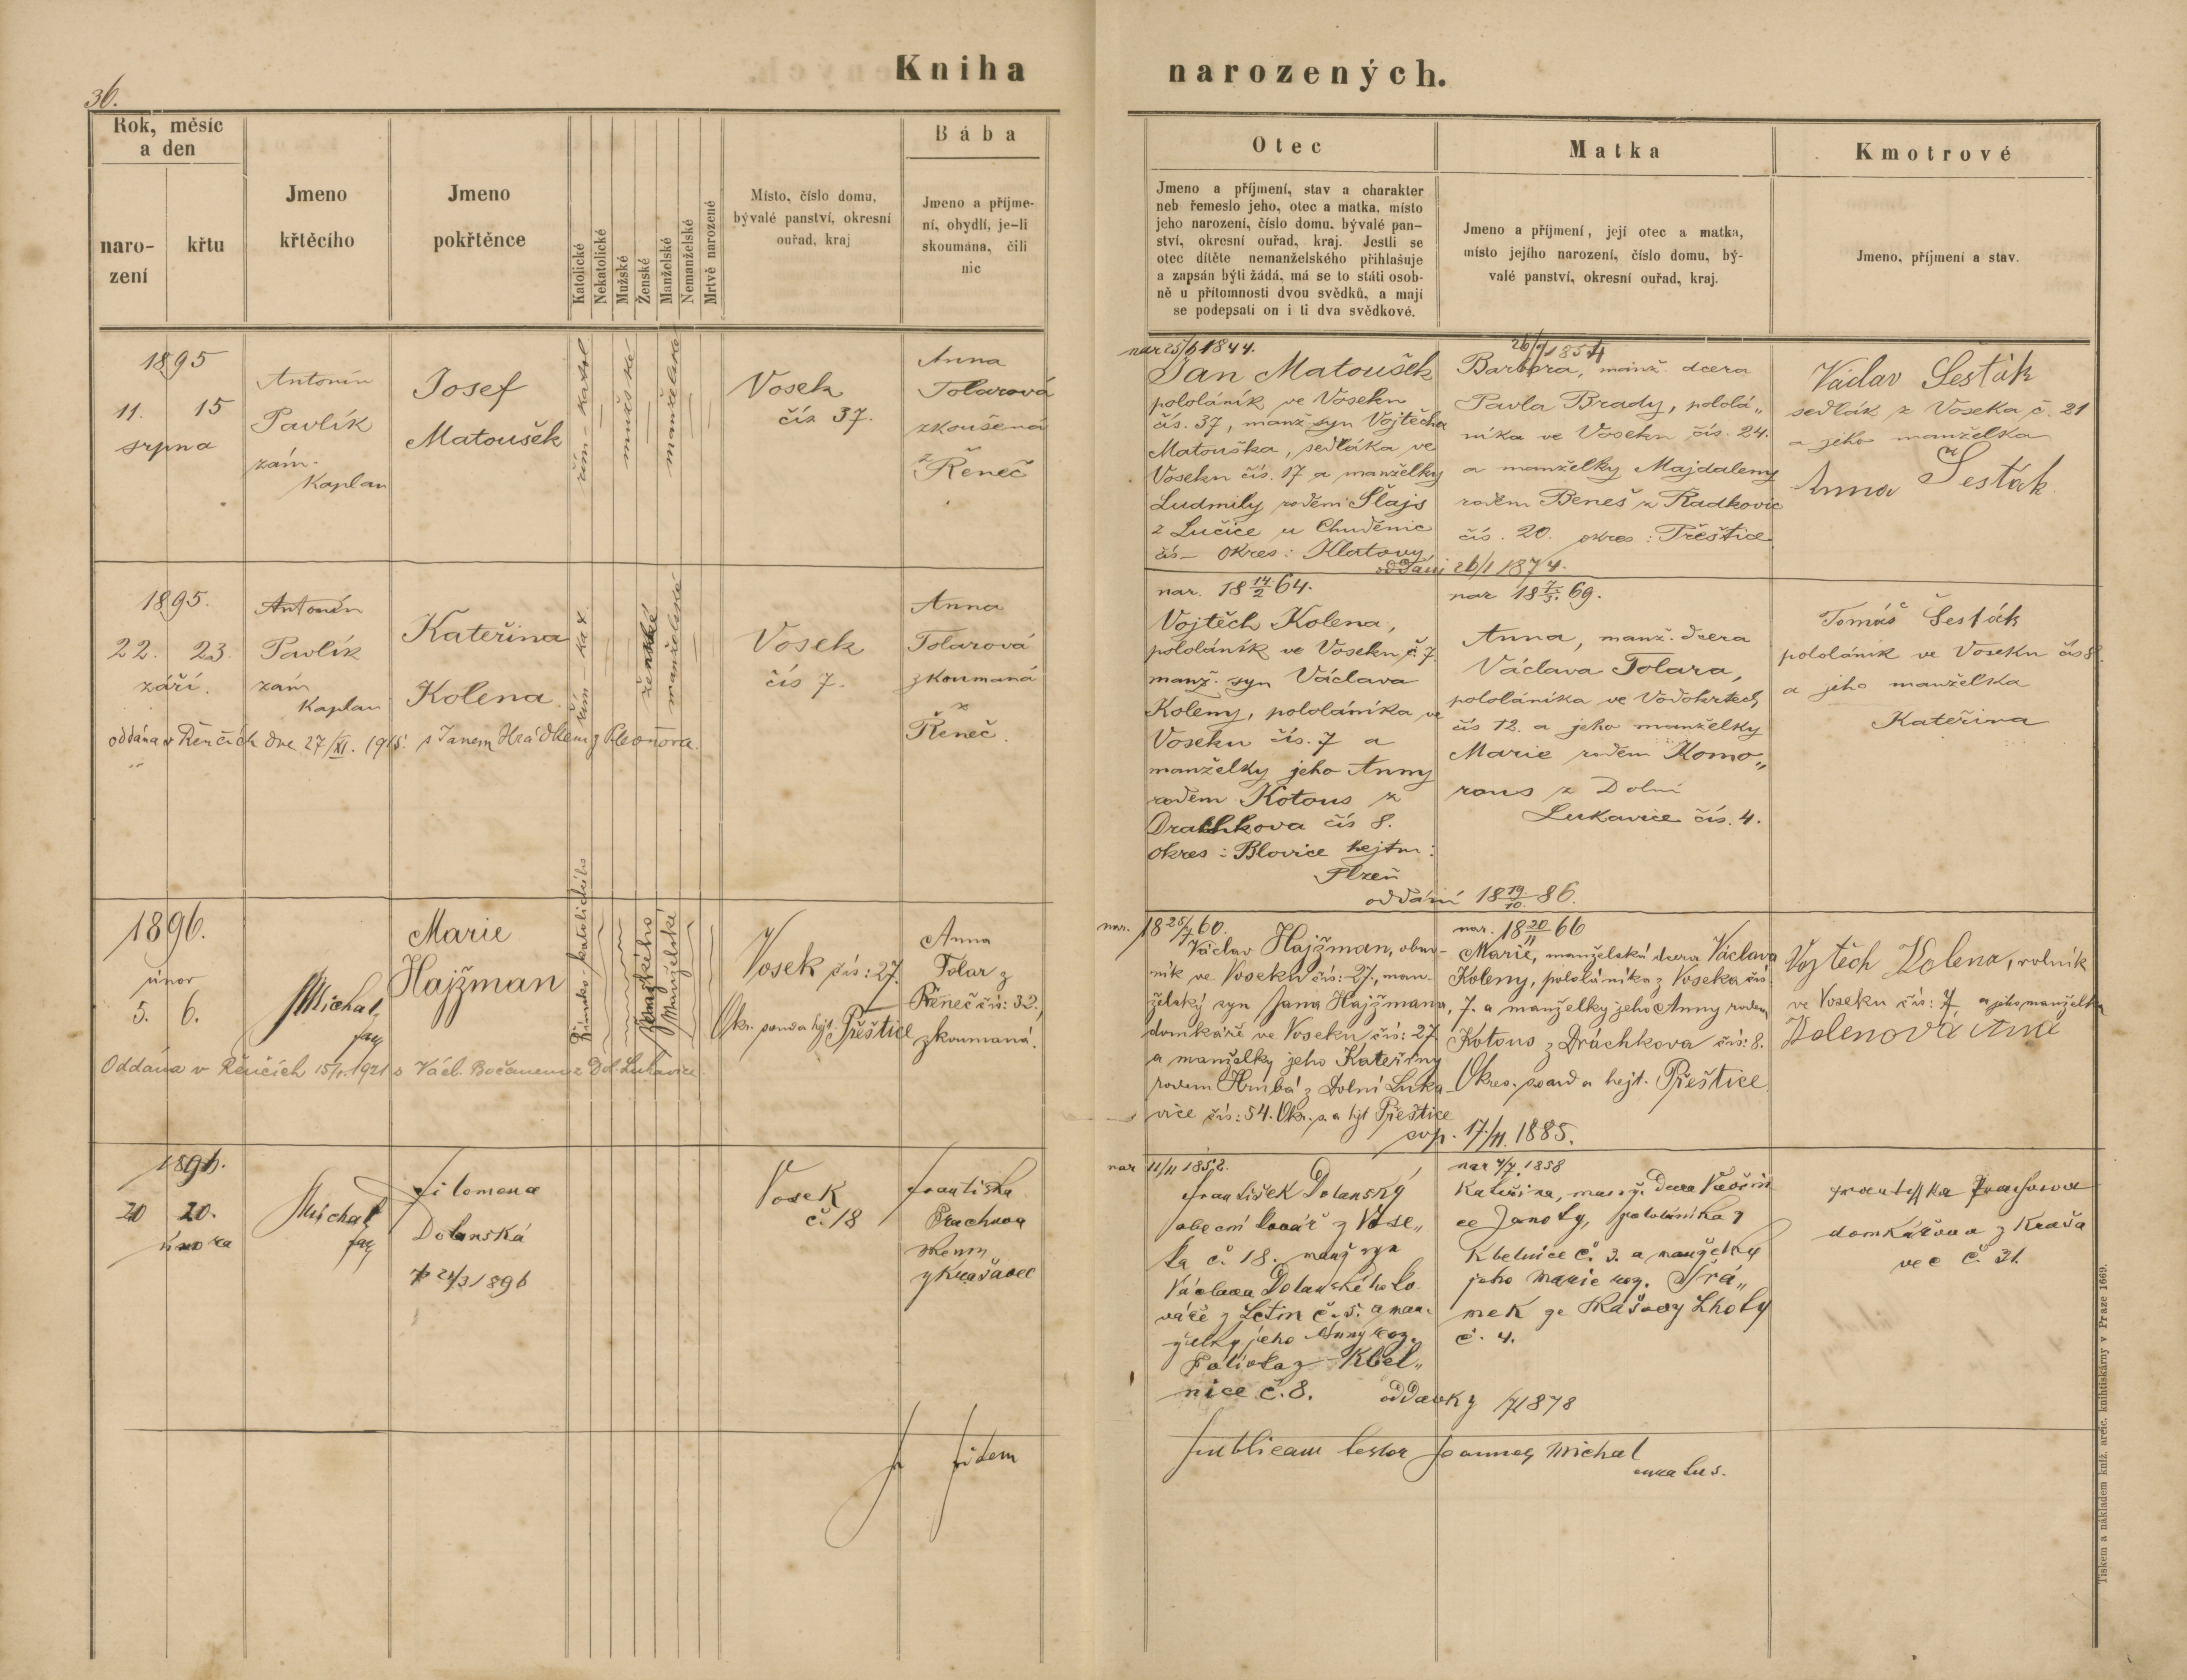 36.
Kniha narozených.
Rok, měsíc
a den
naro-
zení
křtu
Jmeno
křtěcího
Jmeno
pokřtěnce
Katolické
Nekatolické
Mužské
Ženské
Manželské
Nemanželské
Mrtvě narozené
Místo, číslo domu,
bývalé panství, okresní
ouřad, kraj
Bába
Jmeno a příjme-
ní, obydlí, je-li
skoumána, čili
nic
Otec
Jmeno a příjmení, stav a charakter
neb řemeslo jeho, otec a matka, místo
jeho narození, číslo domu, bývalé pan-
ství, okresní ouřad, kraj. Jestli se
otec dítěte nemanželského přihlašuje
a zapsán býti žádá, má se to státi osob-
ně u přítomnosti dvou svědků, a mají
se podepsati on i ti dva svědkové.
Matka
Jmeno a příjmení, její otec a matka,
místo jejího narození, číslo domu, bý-
valé panství, okresní ouřad, kraj.
Kmotrové
Jmeno, příjmení a stav.
1895
11. 15
srpna
Antonín
Pavlík
zám.
Kaplan
Josef
Matoušek
řím - katol
mužské
manželské
Vosek
čís 37.
Anna
Tolarová
zkoušená
z
Řeneč
nar 25/6 1844.
Jan Matoušek
pololáník ve Voseku
čís. 37, manž syn Vojtěcha
Matouška, sedláka ve
Voseku čís. 17 a manželky
Ludmily rodem Šlajs
z Lučice u Chuděnic
čís - okres: Klatovy
1854
Barbora, manž. dcera
Pavla Brady, pololá„
níka ve Voseku čís. 24.
a manželky Majdaleny
rodem Beneš z Radkovic
čís. 20. okres: Přeštice
oddáni 26/1 1874.
Václav Šesták
sedlák z Voseka č. 21
a jeho manželka
Anna Šesták
1895.
22. 23.
září.
Antonín
Pavlík
zám
Kaplan
Kateřina
Kolena
řím - kat
ženské
manželské
Vosek
čís 7.
Anna
Tolarová
zkoumaná
z
Řeneč.
oddána v Řenčích dne 27/XI. 1915 s Janem Hrádkem z Pleonora.
nar. 18 14/2 64.
Vojtěch Kolena,
pololáník ve Voseku č. 7
manž. syn Václava
Koleny, pololáníka ve
Voseku čís. 7 a
manželky jeho Anny
rodem Kotous z
Drachkova čís 8.
okres: Blovice hejtm:
Plzeň
nar 18 7/3. 69.
Anna, manž. dcera
Václava Tolara,
pololáníka ve Vodokrtech
čís 12. a jeho manželky
Marie rodem Komo„
rous z Dolní
Lukavice čís. 4.
oddáni 18 19./10. 86.
Tomáš Šesták
pololáník ve Voseku čís 8.
a jeho manželka
Kateřina
1896.
únor
5. 6.
Michal,
far
Marie
Hajžman
Římsko-katolického
ženského
Manželské
Vosek čís: 27.
Okr. soud a hejt. Přeštice
Anna
Tolar z
Řeneč čís: 32,
zkoumaná.
Oddána v Řenčích 15/1. 1921 s Václ. Bočanem z Dol. Lukavice.
nar. 18 25/7 60.
Václav Hajžman, obuv-
ník ve Voseku čís: 27, man-
želský syn Jana Hajžmana,
domkáře ve Voseku čís: 27.
a manželky jeho Kateřiny
rodem Hrubá z Dolní Luka-
vice čís: 54. Okr. s. a hjt Přeštice
nar. 18 20/11 66
Marie, manželská dcera Václava
Koleny, pololáníka z Voseka čís.
7. a manželky jeho Anny rodem
Kotous z Dráchkova čís: 8.
Okres. soud a hejt. Přeštice.
sop. 17./11. 1885.
Vojtěch Kolena, rolník
ve Voseku čís: 7, a jeho manželka
Kolenova Ana
1896.
20 20.
února
Michal
far
Filomena
Dolanská
† 24/3 1896
Vosek
č. 18
Františka
Prachova
zkoum„
z Krašovec
nar 11/11 1852.
František Dolanský
obecní kovář z Vose„
ka č. 18. manž syn
Václava Dolanského ko
váře z Letin č. 5. a man„
želky jeho Anny roz.
Polívka z Kbel„
nice č. 8.
nar 4/7. 1858
Kateřina, manž. dcera
Janoty, pololáníka z
Kbelnice č. 3. a manželky
jeho Marie roz. Šrá„
mek ze Lhoty
č. 4.
oddavky 1878
Františka Prachova
domkářova z Kraša
vec č. 31.
In fidem publicam testor Joannes Michal
curatus.
Tiskem a nákladem kníž. arcib. knihtiskárny v Praze 1669.